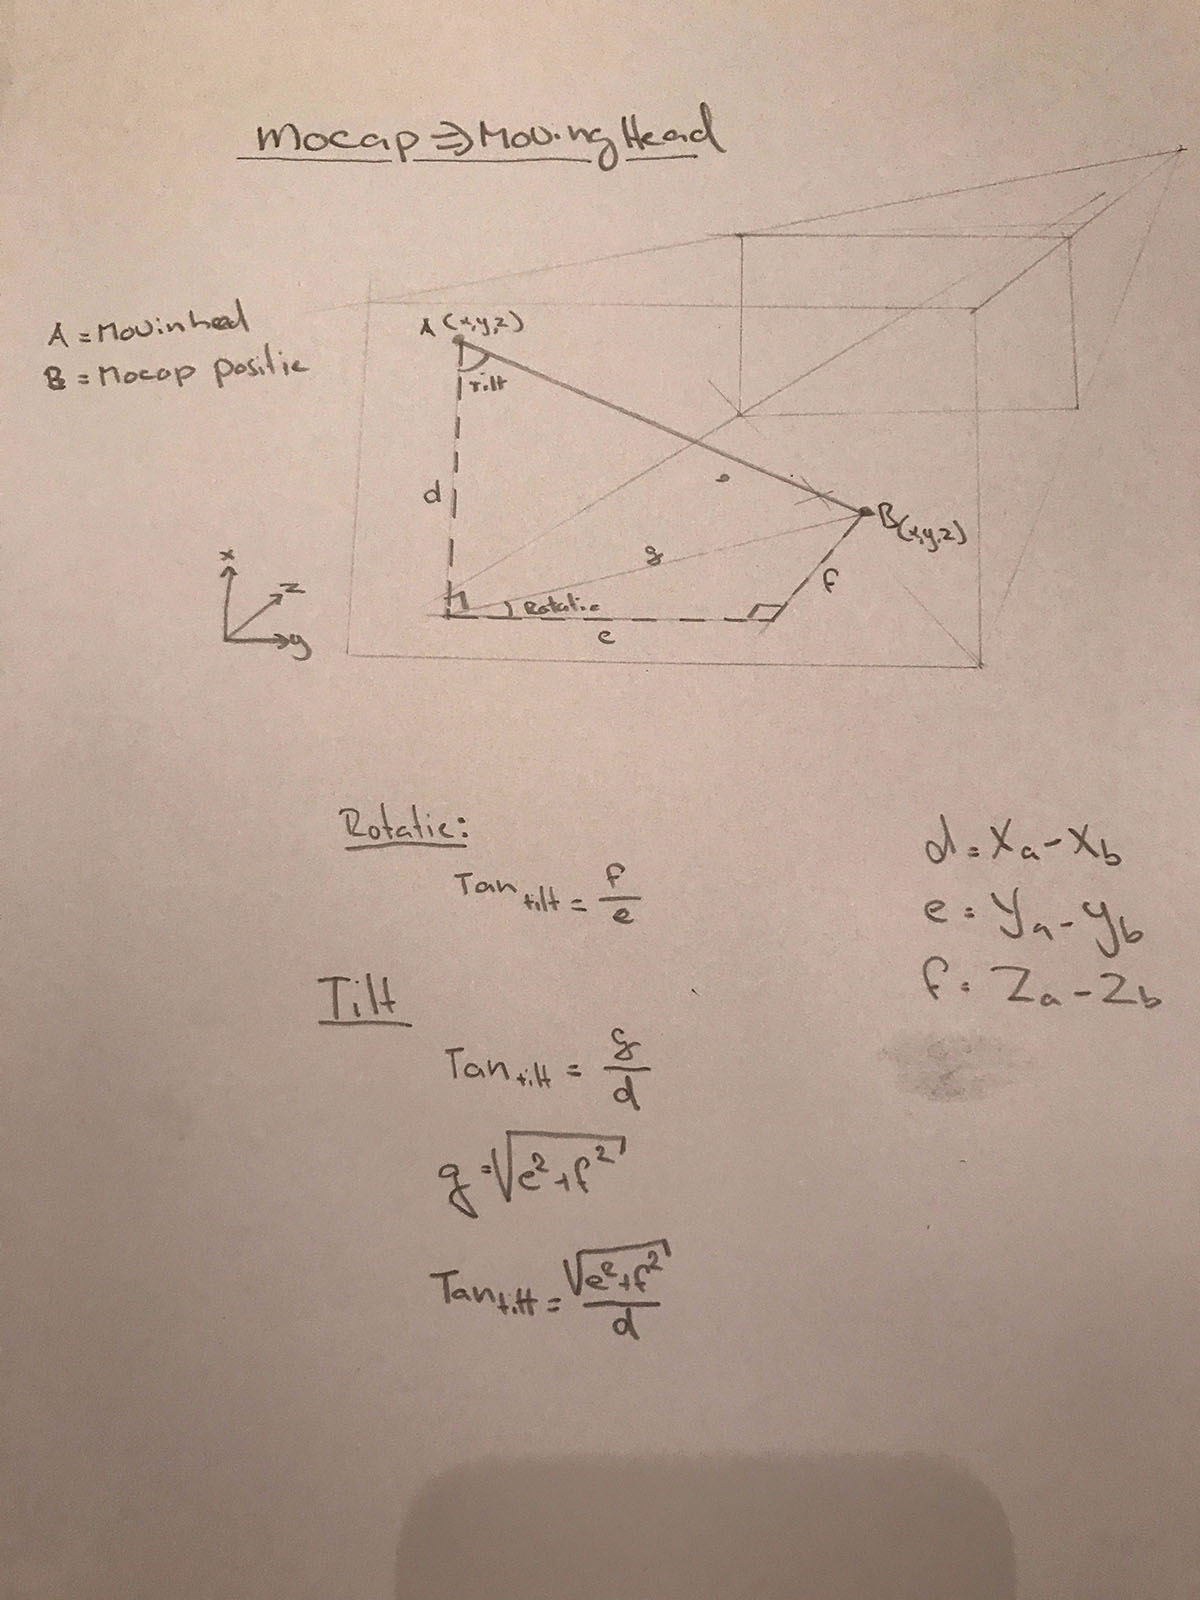 Mocap ⇒ Moving Head
A = Movinhead
B = Mocap positie
A (x,y,z)
Tilt
d
B(x,y,z)
g
f
Rotatie
e
x
z
y
Rotatie:
Tan tilt = f/e
Tilt
Tan tilt = g/d
g = √e²+f²
Tan tilt = √e²+f²/d
d = Xa - Xb
e = Ya - Yb
f = Za - Zb